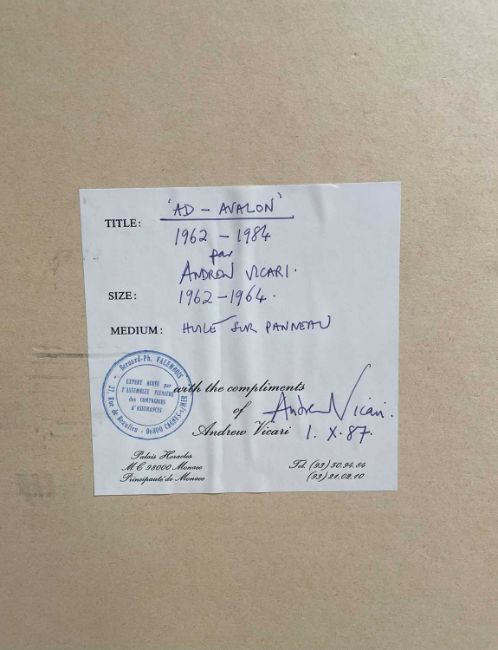 TITLE: 'AD - AVALON'
1962 - 1984
par
ANDREW VICARI.
SIZE: 1962-1964.
MEDIUM: HUILE SUR PANNEAU
Bernard-Ph. VALEMBOIS
EXPERT AGRÉÉ par
l'ASSEMBLÉE PLÉNIÈRE
des COMPAGNIES
d'ASSURANCES
17, Rue de Beaulieu - 06800 CAGNES-s/MER
with the compliments
of Andrew Vicari.
Andrew Vicari 1. X. 87.
Palais Heracles
M.C 98000 Monaco
Principauté de Monaco
Tel. (93) 30.94.64
(93) 21.02.10